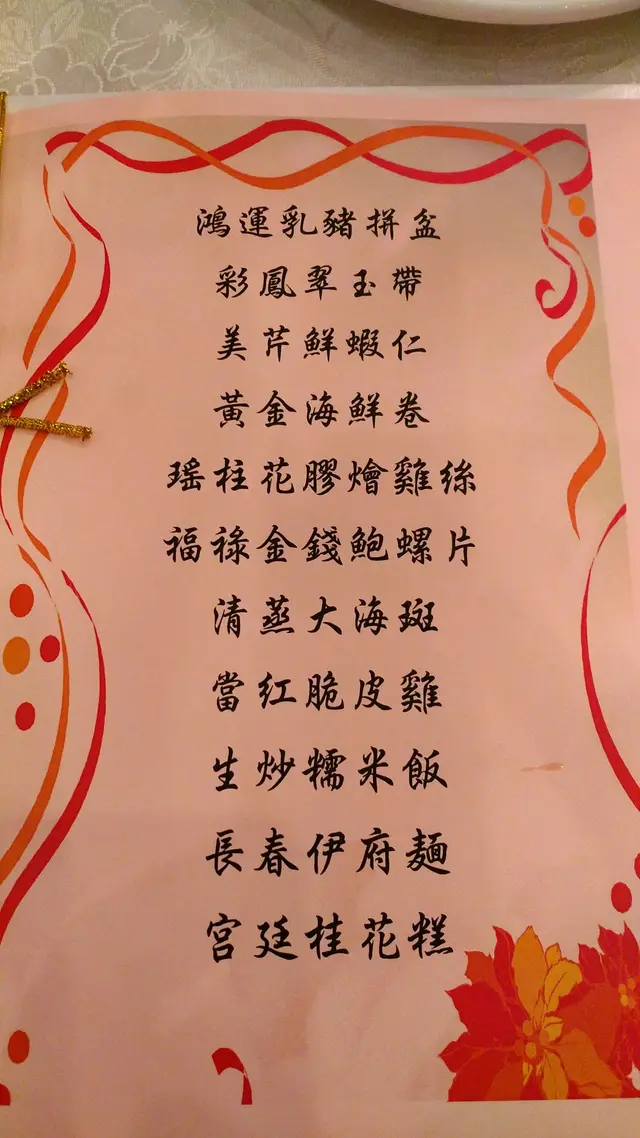 鴻運乳豬拼盆
彩鳳翠玉帶
美芹鮮蝦仁
黃金海鮮卷
瑤柱花膠燴雞絲
福祿金錢鮑螺片
清蒸大海斑
當紅脆皮雞
生炒糯米飯
長春伊府麵
宮廷桂花糕